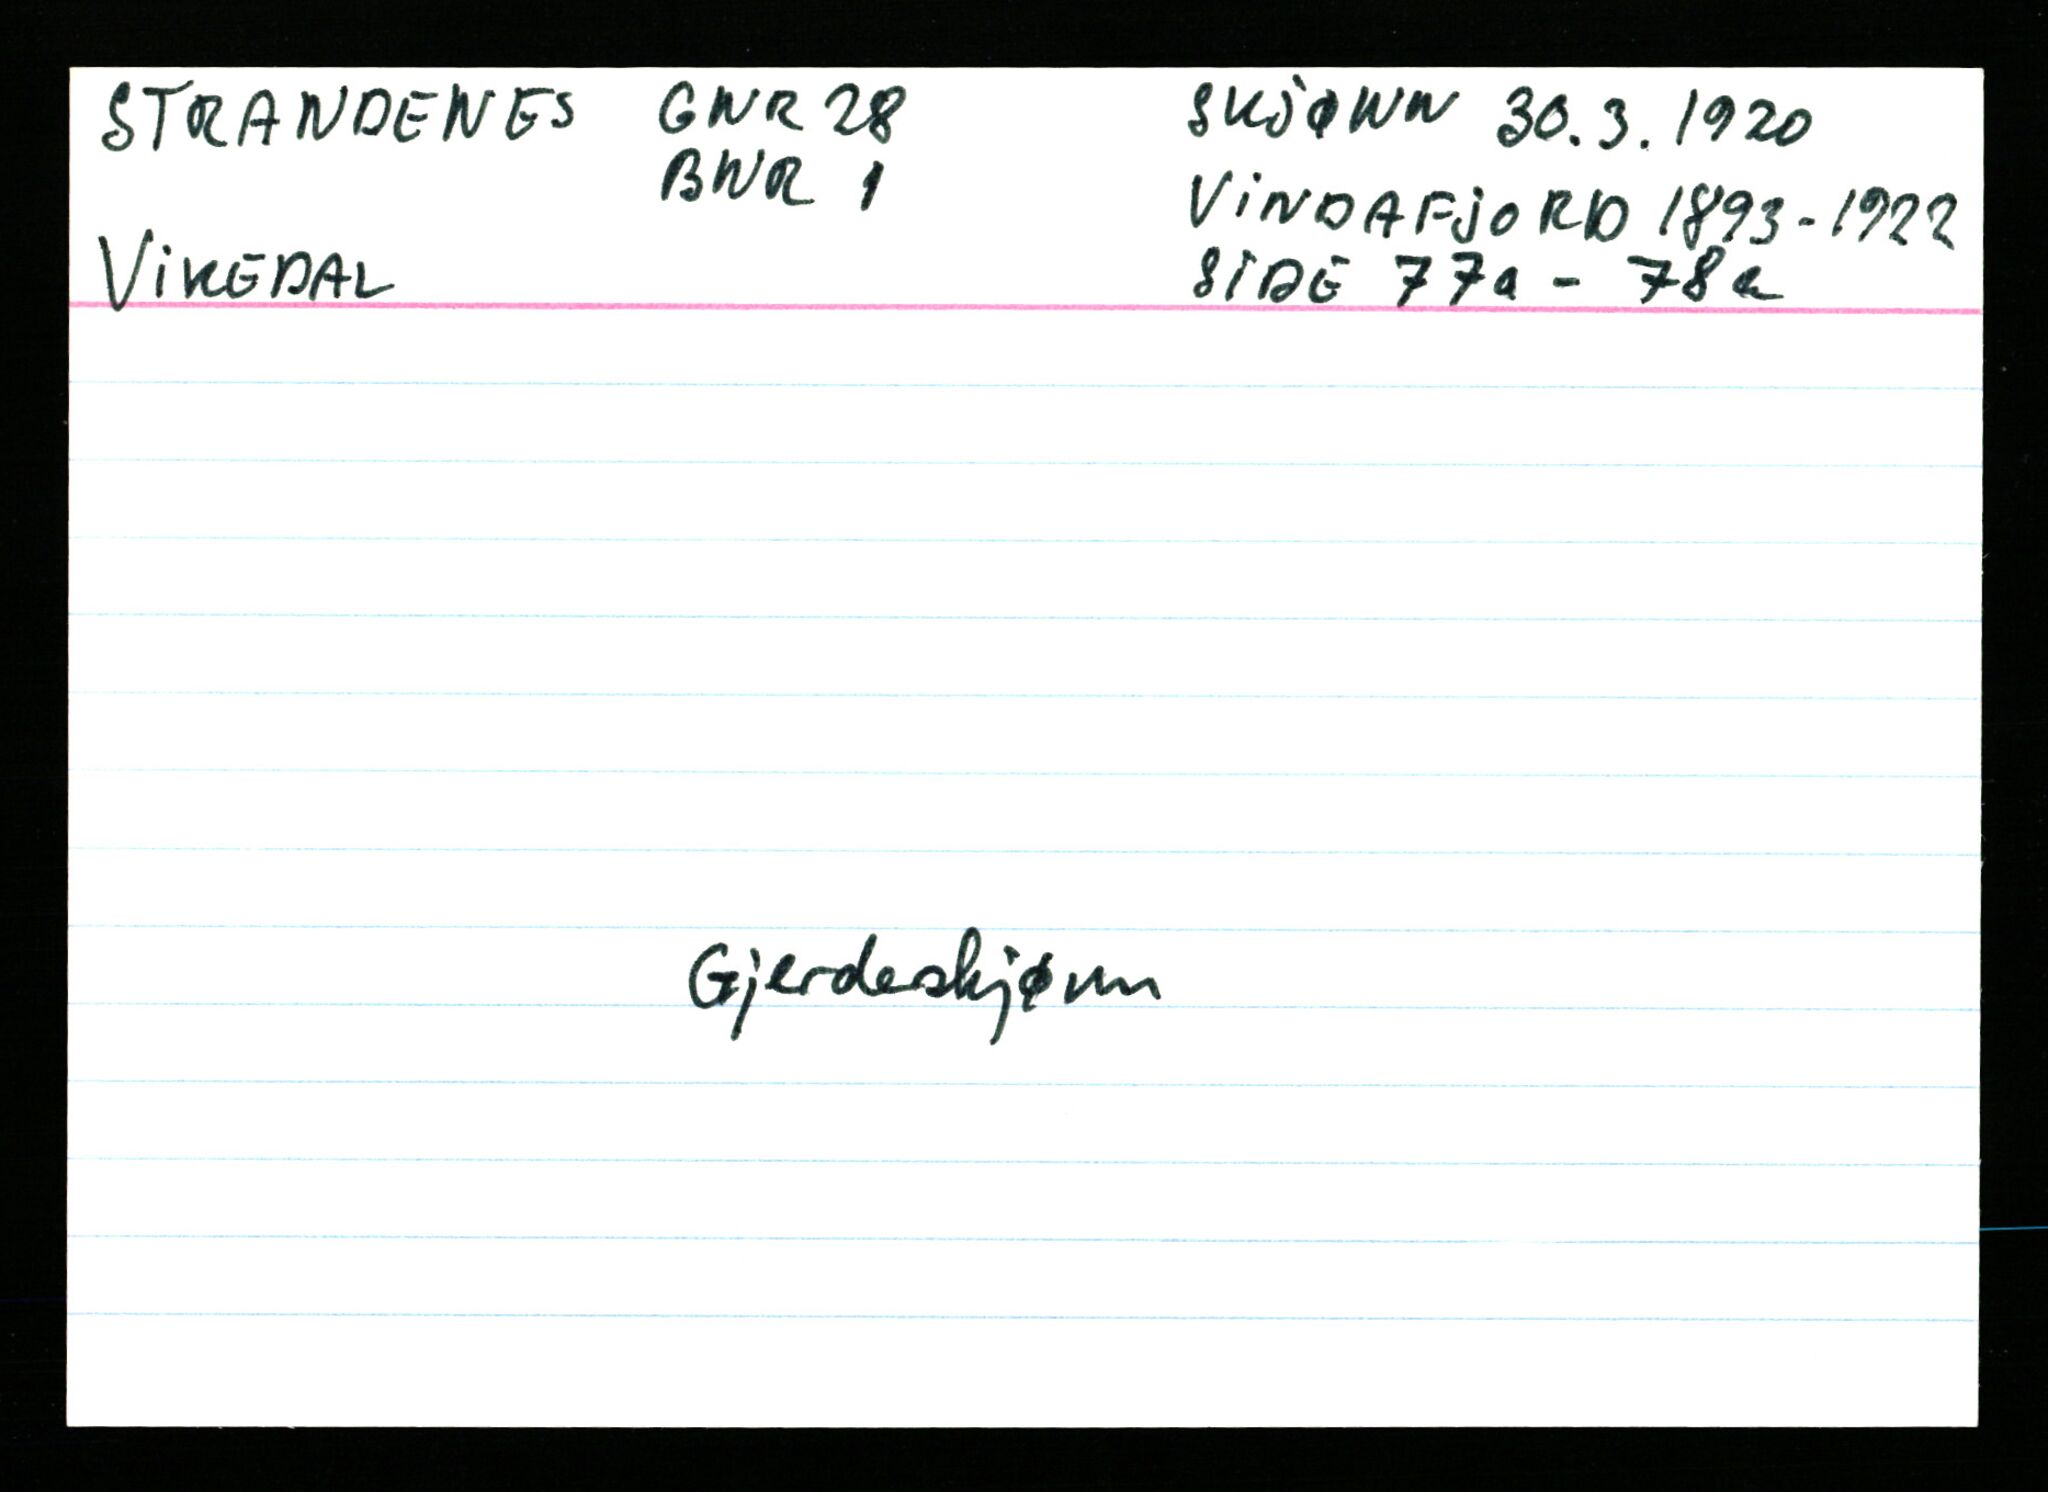 STRANDENES GNR 28 SKJØNN 30.3.1920
BNR 1
VINDAFJORD 1893-1922
VIKEDAL SIDE 77a - 78a
Gjerdeskjønn